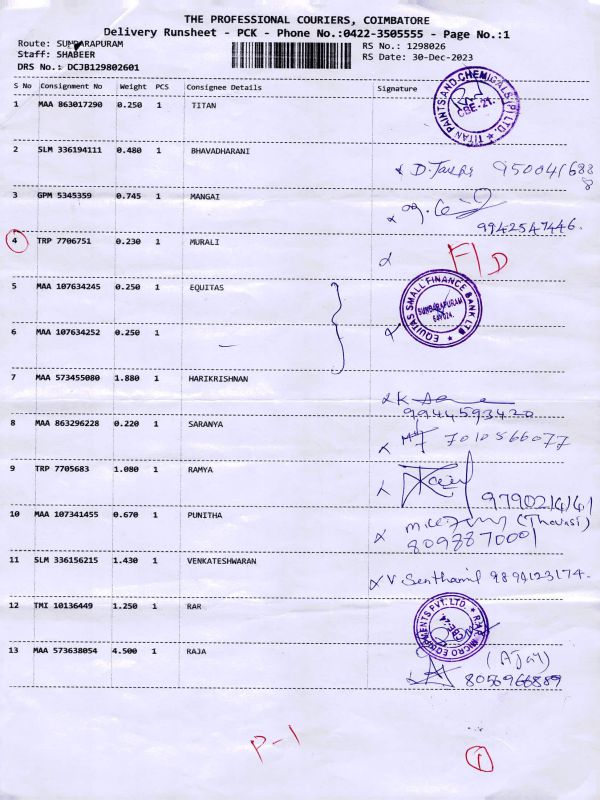 THE PROFESSIONAL COURIERS, COIMBATORE
Delivery Runsheet - PCK - Phone No.:0422-3505555 - Page No.:1
Route: SUNDARAPURAM
RS No.: 1298026
Staff: SHABEER
RS Date: 30-Dec-2023
DRS No.: DCJB129802601
S No Consignment No Weight PCS Consignee Details Signature
1 MAA 863017290 0.250 1 TITAN
TITAN PAINTS AND CHEMICALS (P) LTD. CBE-21.
2 SLM 336194111 0.480 1 BHAVADHARANI
3 GPM 5345359 0.745 1 MANGAI
9942547446.
4 TRP 7706751 0.230 1 MURALI
F/D
5 MAA 107634245 0.250 1 EQUITAS
EQUITAS SMALL FINANCE BANK LTD SUNDARAPURAM
6 MAA 107634252 0.250 1
7 MAA 573455080 1.880 1 HARIKRISHNAN
9944593420
8 MAA 863296228 0.220 1 SARANYA
7010566077
9 TRP 7705683 1.080 1 RAMYA
10 MAA 107341455 0.670 1 PUNITHA
(Thavasi)
8098870001
11 SLM 336156215 1.430 1 VENKATESHWARAN
V. Senthamil 9894123174.
12 TMI 10136449 1.250 1 RAR
RAR MICRO EQUIPMENTS PVT. LTD.
13 MAA 573638054 4.500 1 RAJA
(Ajay)
8056966889
P-1
1